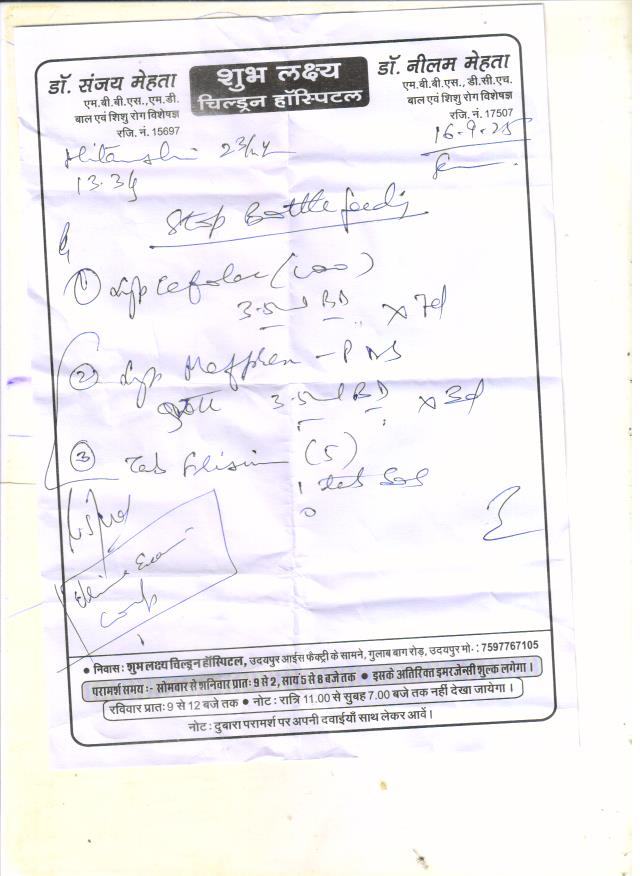 डॉ. संजय मेहता
एम.बी.बी.एस.,एम.डी.
बाल एवं शिशु रोग विशेषज्ञ
रजि. नं. 15697
शुभ लक्ष्य
चिल्ड्रन हॉस्पिटल
डॉ. नीलम मेहता
एम.बी.बी.एस., डी.सी.एच.
बाल एवं शिशु रोग विशेषज्ञ
रजि. नं. 17507
16-9-25
13.3
Stop Bottle feedi
① Syp (100)
3.5ml BD x 7d
② Syp Meffren-P
3.5ml BD x 3d
③ Tab (5)
1 tab Sos
• निवास : शुभ लक्ष्य चिल्ड्रन हॉस्पिटल, उदयपुर आईस फैक्ट्री के सामने, गुलाब बाग रोड़, उदयपुर मो. : 7597767105
परामर्श समय :- सोमवार से शनिवार प्रातः 9 से 2, सायं 5 से 8 बजे तक • इसके अतिरिक्त इमरजेन्सी शुल्क लगेगा ।
रविवार प्रातः 9 से 12 बजे तक • नोट : रात्रि 11.00 से सुबह 7.00 बजे तक नही देखा जायेगा ।
नोट : दुबारा परामर्श पर अपनी दवाईयाँ साथ लेकर आवें ।